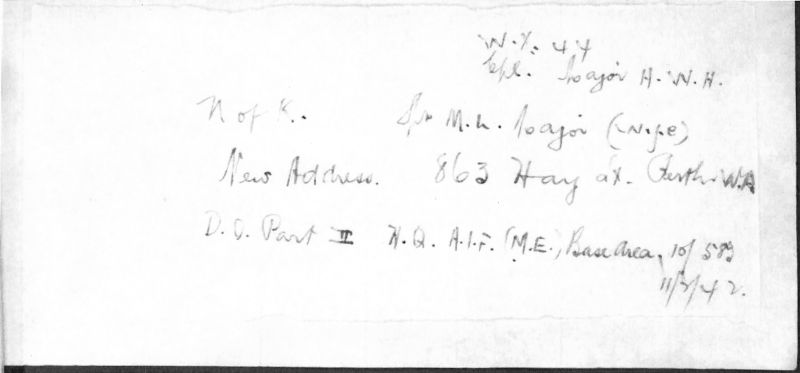 W.X. 44
Cpl. Major H.W.H.
N of K. M. Major (Wife)
New Address. 863 Hay St. Perth W.A
D.O. Part II H.Q. A.I.F. (M.E.) Base Area, 10/583
11/3/42.